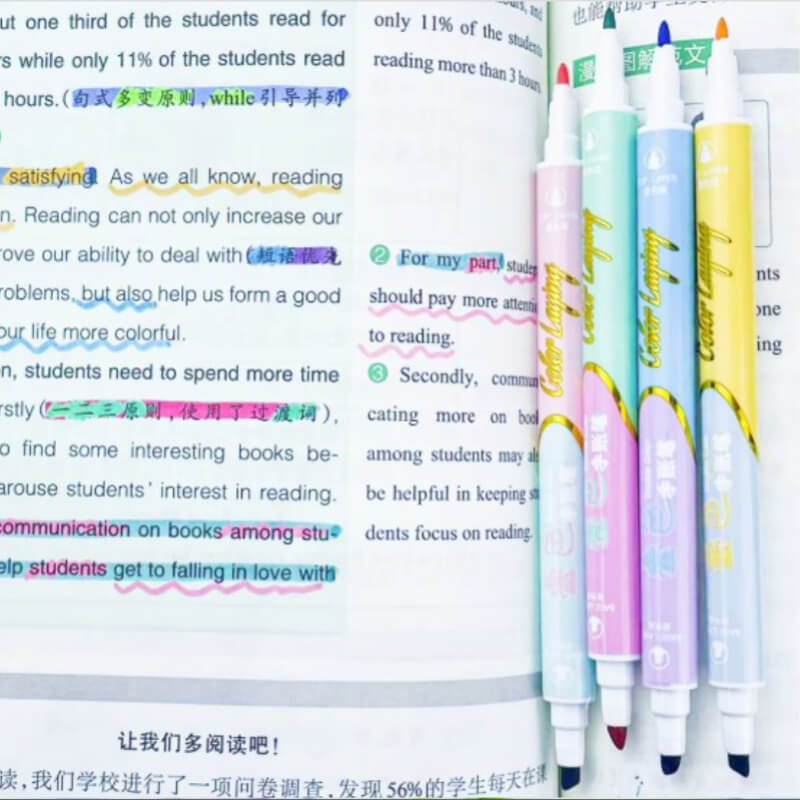 ut one third of the students read for
rs while only 11% of the students read
hours.(句式多变原则,while引导并列
satisfying. As we all know, reading
n. Reading can not only increase our
rove our ability to deal with(短语优先
roblems, but also help us form a good
our life more colorful.
n, students need to spend more time
rstly(一二三原则,使用了过渡词),
o find some interesting books be-
arouse students' interest in reading.
communication on books among stu-
elp students get to falling in love with
only 11% of the students
reading more than 3 hours
② For my part, studen
should pay more attenti
to reading.
③ Secondly, commun
cating more on book
among students may als
be helpful in keeping stu
dents focus on reading.
也能帮助学生
漫 图解范文
nts
one
ing
Color Laying
Color Laying
Color Laying
Color Laying
让我们多阅读吧!
读,我们学校进行了一项问卷调查,发现56%的学生每天在课